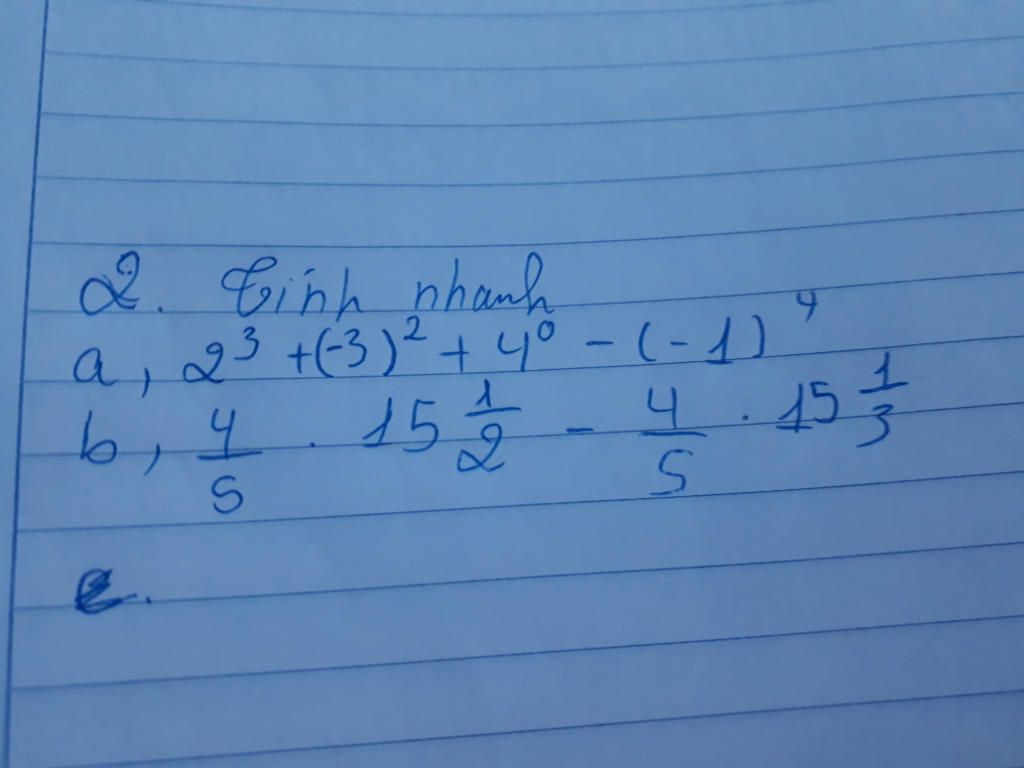 2. Tính nhanh
a, 2³ + (-3)² + 4⁰ - (-1)⁴
b, 4/5 . 15 1/2 - 4/5 . 15 1/3